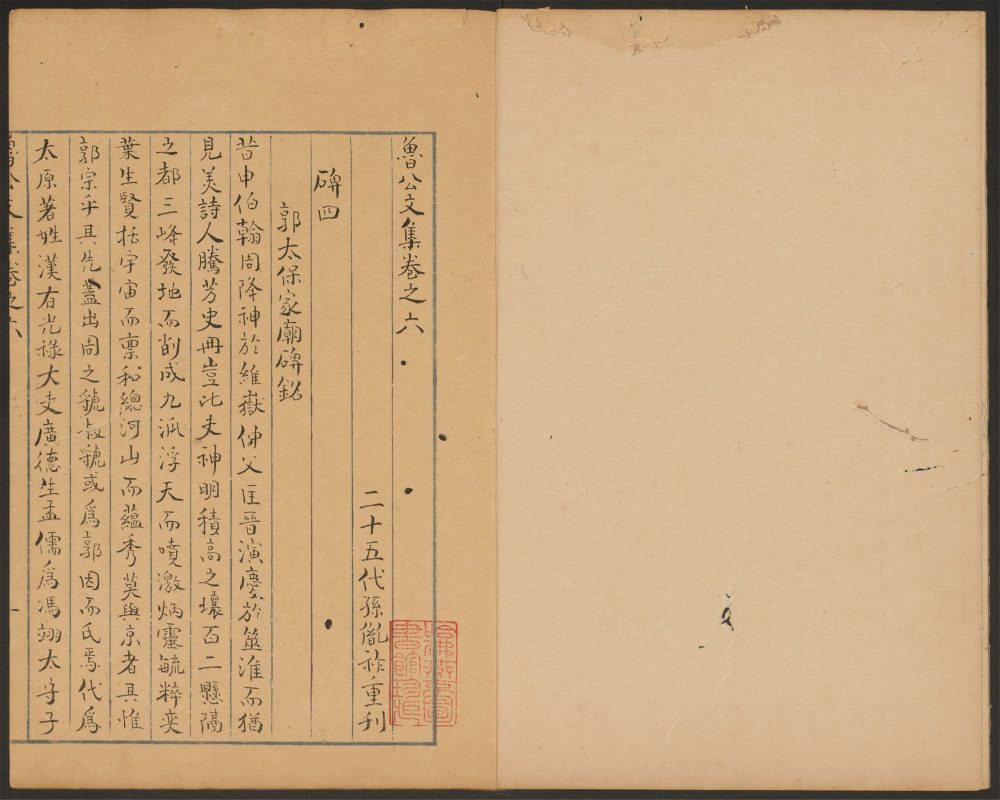 魯公文集卷之六
二十五代孫胤祚重刊
碑四
郭太保家廟碑銘
昔申伯翰周降神於維嶽仲父匡晉演慶於筮淮而猶
見美詩人騰芳史冊豈比夫神明積高之壤百二懸隔
之都三峰發地而削成九派浮天而噴激炳靈毓粹奕
葉生賢括宇宙而稟和總河山而蘊秀莫與京者其惟
郭宗乎其先蓋出周之虢叔虢或為郭因而氏焉代為
太原著姓漢有光祿大夫廣德生孟儒為馮翊太守子
魯公文集卷之六
一